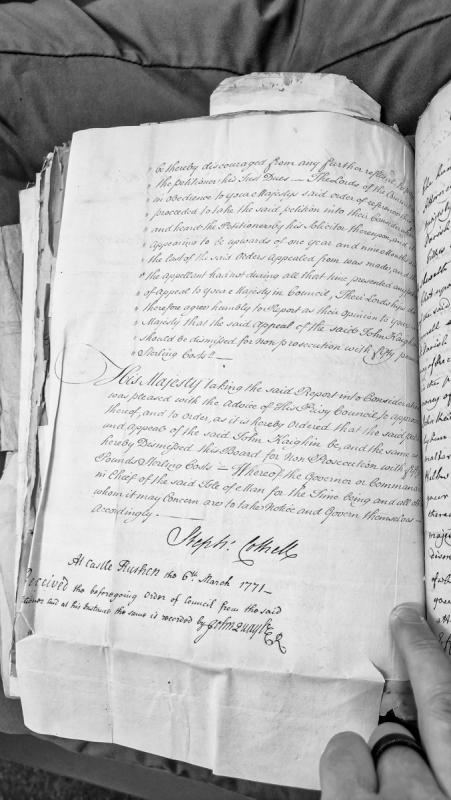 " be thereby discouraged from any further
" the petitioner his Just Dues — The Lords of the
" in obedience to your Majestys said order of reference
" proceeded to take the said petition into their Consideration
" and heard the Petitioner by his Solicitor thereupon, and
" appearing to be upwards of one year and nine Months
" the last of the said Orders Appealed from was made, and
" the appellant has not during all that time presented any
" of Appeal to your Majesty in Council, Their Lordships do
" therefore agree humbly to Report as their Opinion to your
" Majesty that the said Appeal of the said John Kaighin
" should be dismissed for non prosecution with fifty pounds
" Sterling Costs" —
His Majesty taking the said Report into Consideration
was pleased with the Advice of His Privy Council to approve
thereof, and to order, as it is hereby ordered that the said
and Appeal of the said John Kaighin be, and the same is
hereby Dismissed this Board for Non Prosecution with fifty
Pounds Sterling Costs — Whereof the Governor or Commander
in Chief of the said Isle of Man for the Time being and all others
whom it may Concern are to take Notice and Govern themselves
Accordingly. —
Steph: Cottrell
At Castle Rushen the 6th March 1771 —
Received the beforegoing Order of Council from the said
and at his Instance the same is recorded by John Quayle
CR